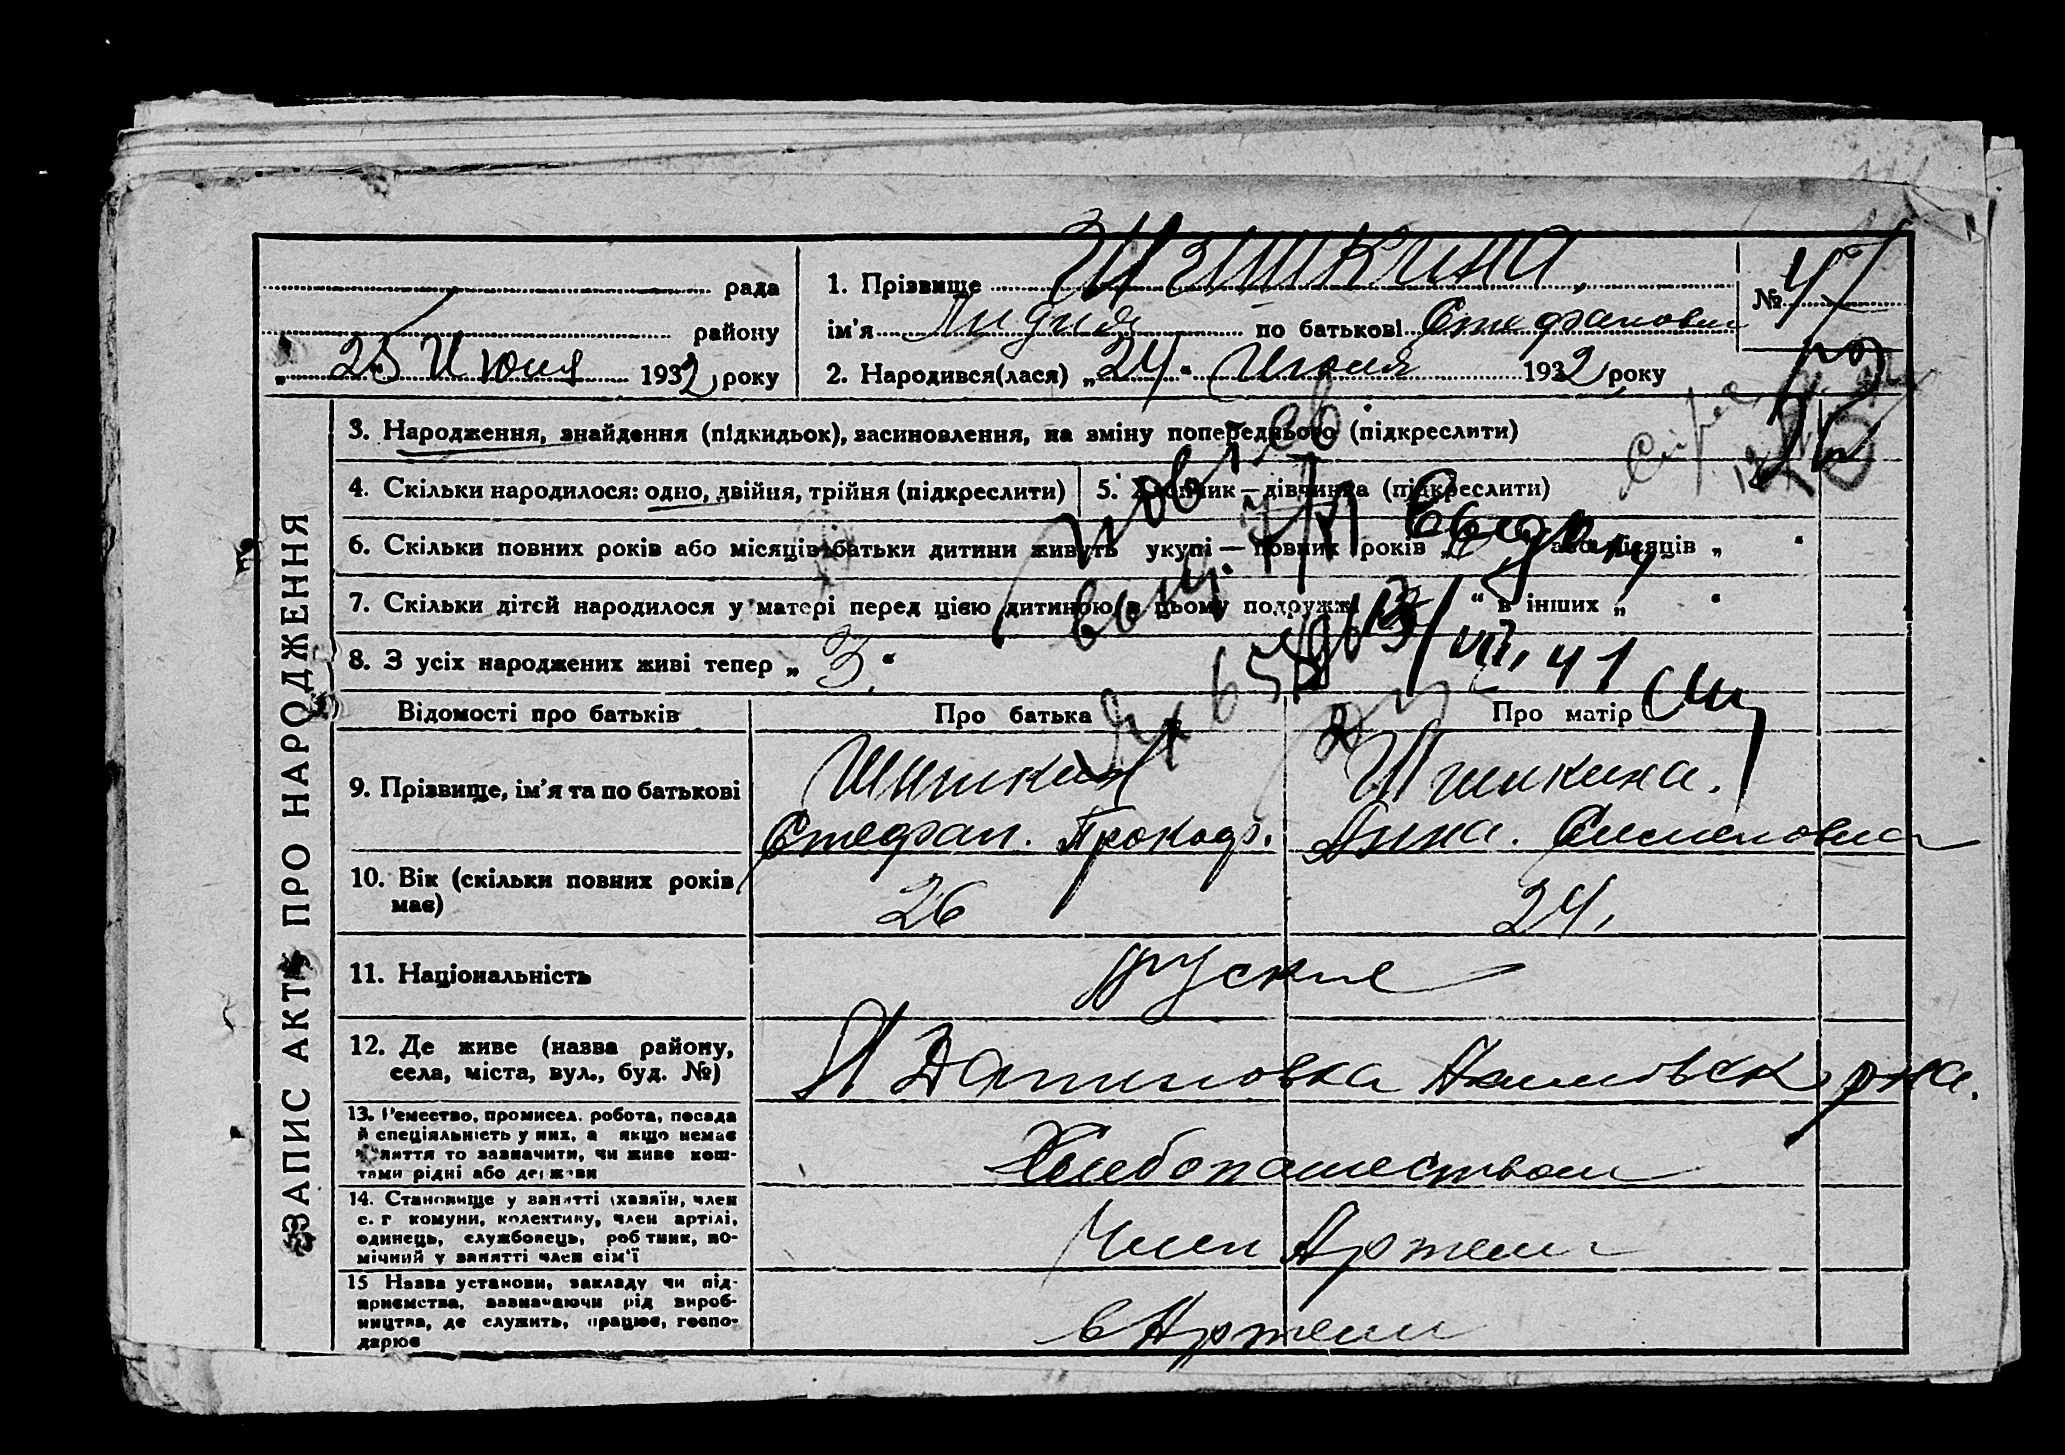 рада
району
„ 25 Июня 1932 року
1. Прізвище Шишкина
ім'я Лидия по батькові Стефановна
2. Народився(лася) „24“ Июня 1932 року
№ 47
ЗАПИС АКТУ ПРО НАРОДЖЕННЯ
3. Народження, знайдення (підкидьок), засиновлення, на зміну попереднього (підкреслити)
4. Скільки народилося: одно, двійня, трійня (підкреслити)
5. Хлопчик — дівчинка (підкреслити)
6. Скільки повних років або місяців батьки дитини живуть укупі — повних років „ або місяців „ “
7. Скільки дітей народилося у матері перед цією дитиною, в цьому подружжі “ в інших „ “
8. З усіх народжених живі тепер „ 3 “
Відомості про батьків
Про батька
Про матір
9. Прізвище, ім'я та по батькові
Шишкин
Стефан. Прокоф.
Шишкина.
Анна. Семеновна
10. Вік (скільки повних років має)
26
24,
11. Національність
руские
12. Де живе (назва району,
села, міста, вул., буд. №)
Акимовск р-на.
13. Ремество, промисел, робота, посада
й спеціяльність у них, а якщо немає
заняття то зазначити, чи живе кош-
тами рідні або держави
Хлебопашеством
14. Становище у занятті (хазяїн, член
с. г комуни, колективу, член артілі,
одинець, службовець, робітник, по-
мічний у занятті член сім'ї
Член Артели
15 Назва установи, закладу чи під-
приємства, зазначаючи рід вироб-
ництва, де служить, працює, госпо-
дарює
в Артели